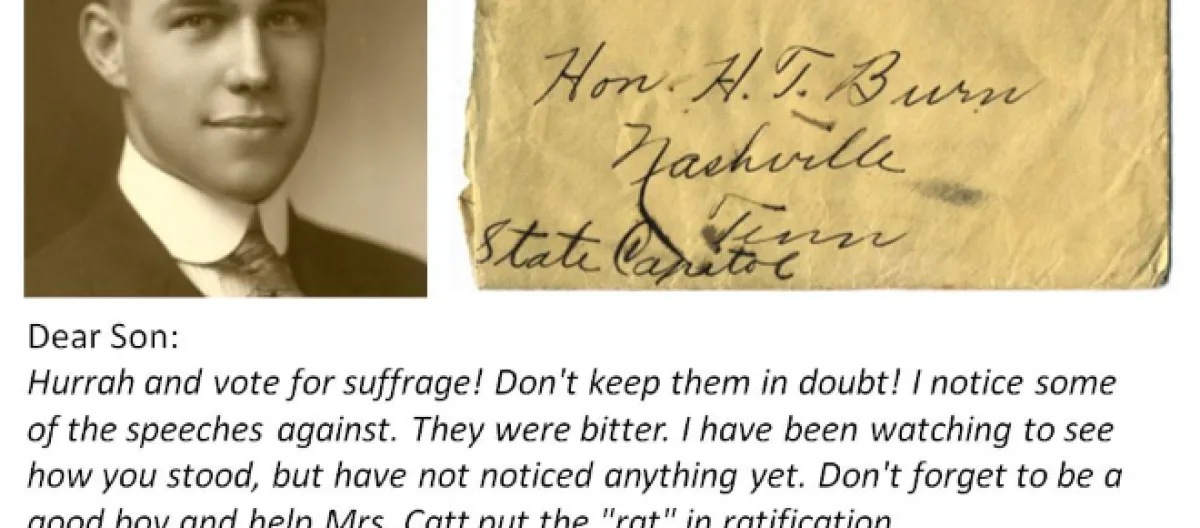 Hon. H. T. Burn
Nashville
Tenn
State Capitol
Dear Son:
Hurrah and vote for suffrage! Don't keep them in doubt! I notice some
of the speeches against. They were bitter. I have been watching to see
how you stood, but have not noticed anything yet. Don't forget to be a
good boy and help Mrs. Catt put the "rat" in ratification.